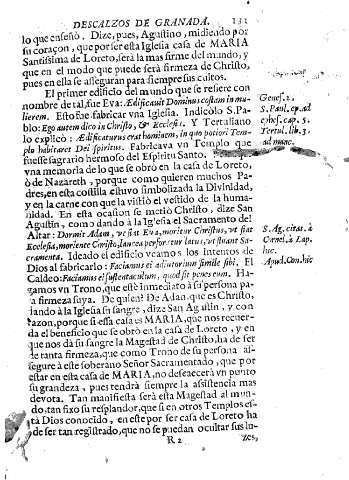 DESCALZOS DE GRANADA. 131
lo que enseñò. Dize, pues, Agustino, midiendo por
su coraçon, que por ser esta Iglesia casa de MARIA
Santissima de Loreto, serà la mas firme del mundo, y
que en el modo que puede serà firmeza de Christo,
pues en ella se asseguran para siempre sus cultos.
El primer edificio del mundo que se refiere con
nombre de tal, fue Eva: Ædificauit Dominus costam in mu-
lierem. Esto fue fabricar vna Iglesia. Indicòlo S. Pa-
blo: Ego autem dico in Christo, & Ecclesia. Y Tertuliano
lo explicò: Ædificaturus erat hominem, in quo potiori Tem-
plo habitaret Dei spiritus. Fabricava vn Templo que
fuesse sagrario hermoso del Espiritu Santo.
vna memoria de lo que se obrò en la casa de Loreto,
ò de Nazareth, porque como quieren muchos Pa-
dres, en esta costilla estuvo simbolizada la Divinidad,
y en la carne con que la vistiò el vestido de la huma-
nidad. En esta ocasion se metiò Christo, dize San
Agustin, como dando à la Iglesia el Sacramento del
Altar: Dormit Adam, vt fiat Eva, moritur Christus, vt fiat
Ecclesia, moriente Christo, lancea perforatur latus, vt fluant Sa-
cramenta. Ideado el edificio veamos los intentos de
Dios al fabricarlo: Faciamus ei adiutorium simile sibi. El
Caldeo: Faciamus ei sustentaculum, quod sit penes eum. Ha-
gamos vn Trono, que estè inmediato à su persona pa-
ra firmeza suya. De quien? De Adan, que es Christo,
dando à la Iglesia su sangre, dize San Agustin, y con
razon, porque si essa casa es MARIA, que nos recuer-
da el beneficio que se obrò en la casa de Loreto, y en
que nos dà su sangre la Magestad de Christo, ha de ser
de tanta firmeza, que como Trono de su persona as-
segure à este soberano Señor Sacramentado, que por
estar en esta casa de MARIA, no desaecerà vn punto
su grandeza, pues tendrà siempre la assistencia mas
devota. Tan manifiesta serà esta Magestad al mun-
do, tan fixo su resplandor, que si en otros Templos es-
tà Dios conocido, en este por ser casa de Loreto ha
de ser tan registrado, que no se puedan ocultar sus lu-
R 2 zes,
Genes. 2.
S. Paul. ep. ad
ephes. cap. 5.
Tertul. lib. 3.
ad marc.
S. Ag. citat. à
Cornel. à Lap.
hic.
Apud. Con. hic